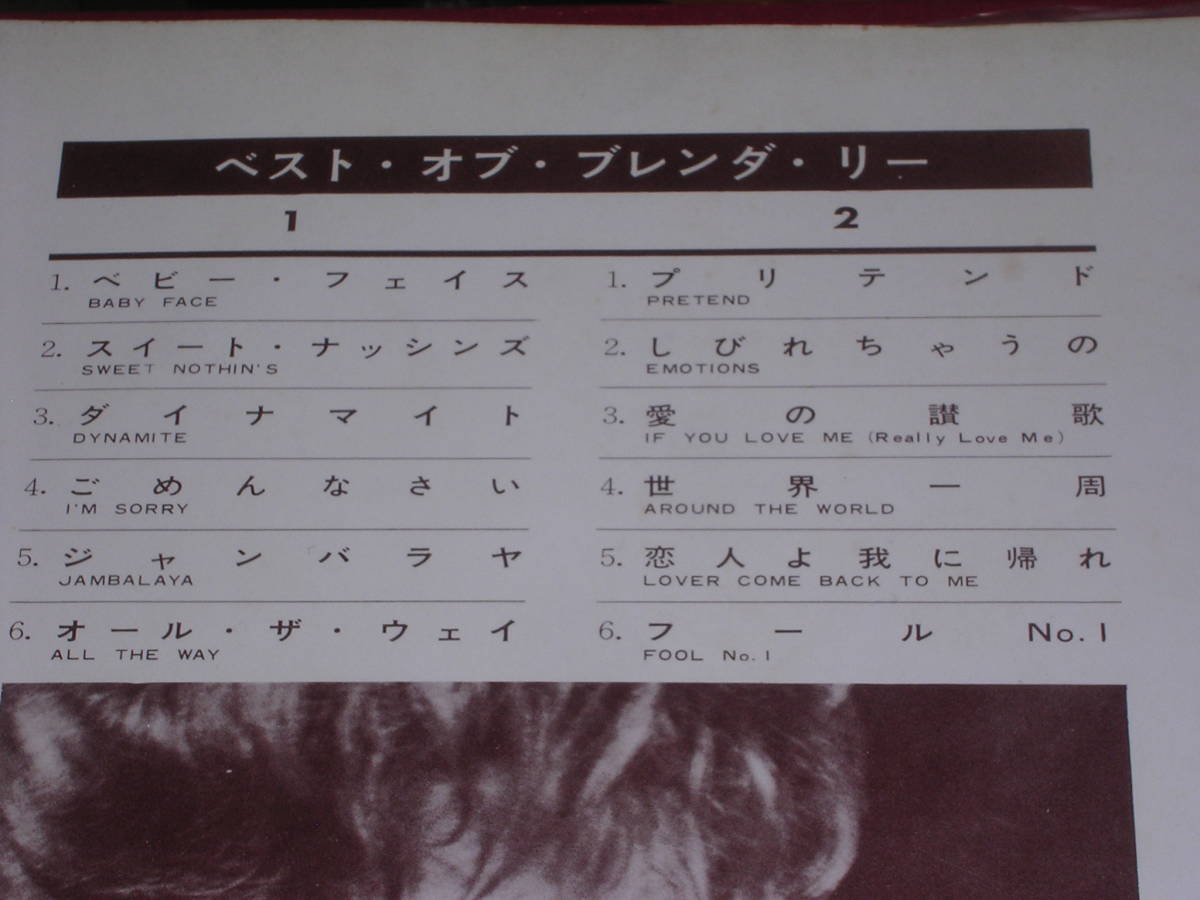 ベスト・オブ・ブレンダ・リー
1
1. ベビー・フェイス
BABY FACE
2. スイート・ナッシンズ
SWEET NOTHIN'S
3. ダイナマイト
DYNAMITE
4. ごめんなさい
I'M SORRY
5. ジャンバラヤ
JAMBALAYA
6. オール・ザ・ウェイ
ALL THE WAY
2
1. プリテンド
PRETEND
2. しびれちゃうの
EMOTIONS
3. 愛の讃歌
IF YOU LOVE ME (Really Love Me)
4. 世界一周
AROUND THE WORLD
5. 恋人よ我に帰れ
LOVER COME BACK TO ME
6. フールNo.1
FOOL No.1